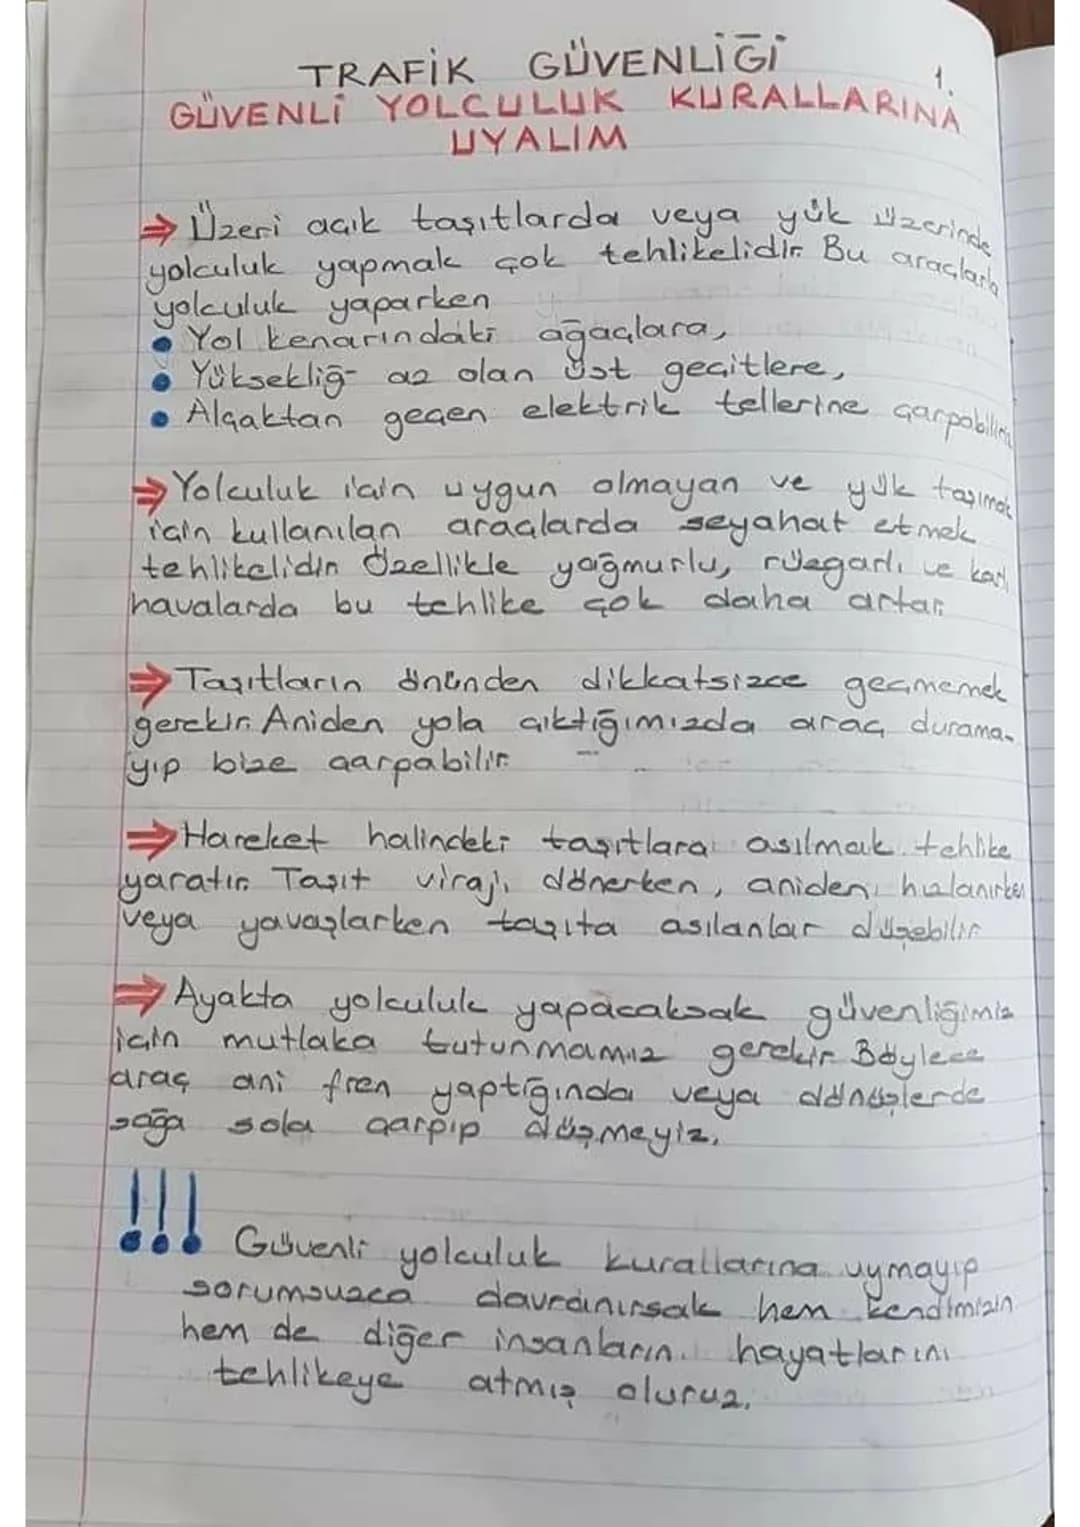 TRAFİK GÜVENLİĞİ
1.
GÜVENLİ YOLCULUK KURALLARINA
UYALIM
⇒ Üzeri açık taşıtlarda veya yük üzerinde
yolculuk yapmak çok tehlikelidir. Bu araçlarla
yolculuk yaparken
• Yol kenarındaki ağaçlara,
• Yüksekliğ- az olan üst geçitlere,
• Alçaktan geçen elektrik tellerine çarpabiliriz
⇒ Yolculuk için uygun olmayan ve yük taşımak
için kullanılan araçlarda seyahat etmek
tehlikelidir. Özellikle yağmurlu, rüzgarlı ve karlı
havalarda bu tehlike çok daha artar.
⇒ Taşıtların önünden dikkatsizce geçmemek
gerekir. Aniden yola çıktığımızda araç durama-
yıp bize çarpabilir.
⇒ Hareket halindeki taşıtlara asılmak tehlike
yaratır. Taşıt virajı dönerken, aniden hızlanırken
veya yavaşlarken taşıta asılanlar düşebilir.
⇒ Ayakta yolculuk yapacaksak güvenliğimiz
için mutlaka tutunmamız gerekir. Böylece
araç ani fren yaptığında veya dönüşlerde
sağa sola çarpıp düşmeyiz.
!!! Güvenli yolculuk kurallarına uymayıp
sorumsuzca davranırsak hem kendimizin
hem de diğer insanların hayatlarını
tehlikeye atmış oluruz.